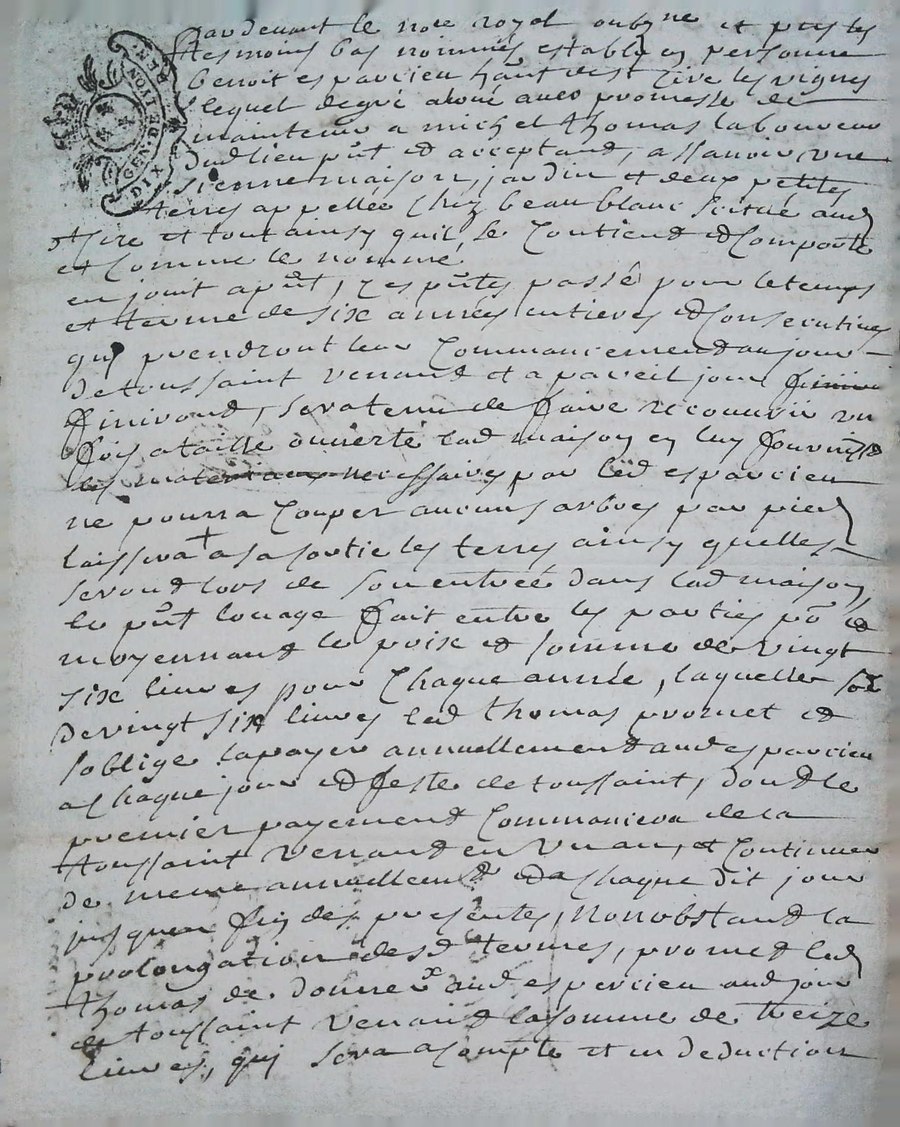 GEN DETTION DIX DEN
Pardevant le nore royal soubzne et pnts les
tesmoins bas nommés estably en personne
benoit esparcieu hant de st cire les vignes
lequel de gré a loué avec promesse de
maintenir a michel thomas laboureur
dud lieu pnt et acceptand, assavoir une
sienne maison, jardin et deux petites
terres appellée chez beau blanc scitué aud
st sire et tout ainsy quil se contiend et comporte
et comme le nommé
en jouit a pnt, ces pntes passé pour le temps
et terme de six années entieres et consecutives
quy prendront leur commancement au jour
de toussaint venand et a pareil jour
finirond, sera tenu de faire recouvrir un
fois a taille ouverte lad maison en luy fournissd
les materiaux necessaires par led esparcieu
ne pourra couper aucuns arbres par pied
laissera + a sa sortie les terres ainsy quelles
serond lors de son entreé dans lad maison,
le pnt louage fait entre les parties pō et
moyennand le prix et somme de vingt
six livres pour chaque année, laquelle so
de vingt six livres led thomas promet et
soblige la payer annuellement aud esparcieu
a chaque jour et feste de toussaint, dond le
premier payemend commancera de la
toussaint venand en un an, et continuer
de meme annuellemt et a chaque dit jour
jusquen fin des presentes, nonobstand la
prolongation desd termes, promet led
thomas de donner aud esparcieu aud jour
de toussaint venand la somme de treize
livres, quj sera a compte et en deduction